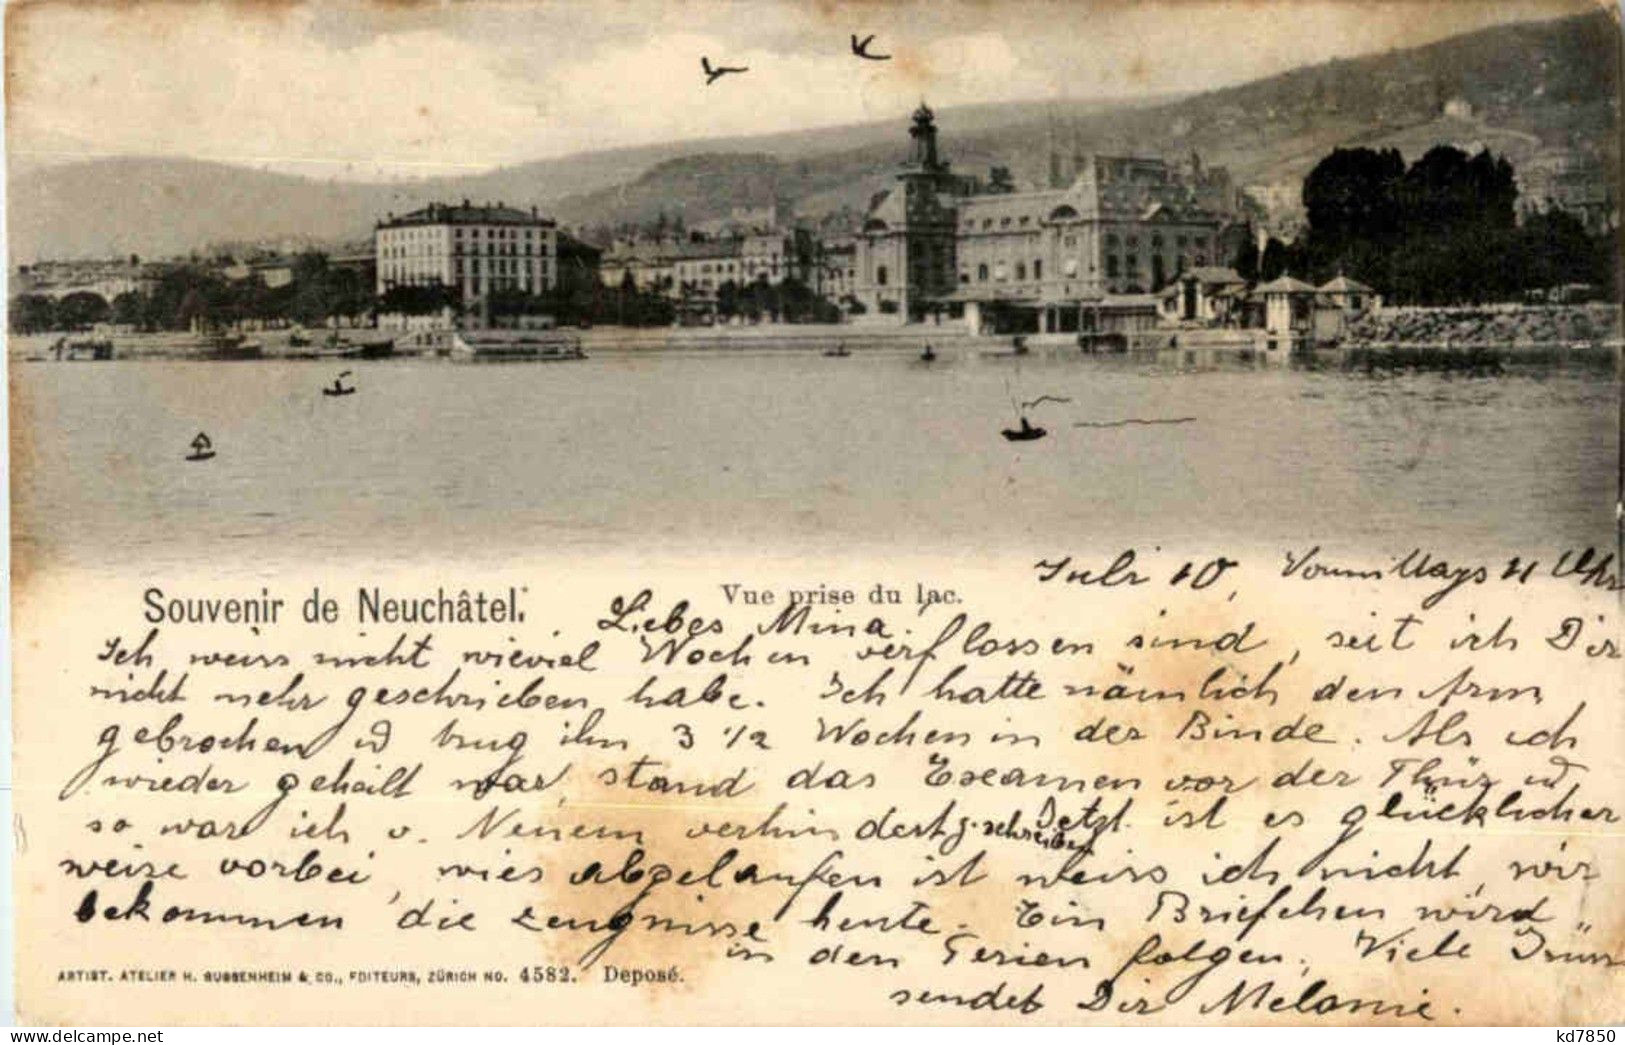 Juli 10, Vormittags 11 Uhr
Souvenir de Neuchâtel.
Vue prise du lac.
Liebes Mina,
Ich weiss nicht wieviel Wochen verflossen sind, seit ich Dir
nicht mehr geschrieben habe. Ich hatte nämlich den Arm
gebrochen und trug ihn 3 1/2 Wochen in der Binde. Als ich
wieder geheilt war, stand das Examen vor der Thür und
so war ich v. Neuem verhindert z. schreiben Jetzt ist es glücklicher
weise vorbei, wies abgelaufen ist weiss ich nicht, wir
bekommen die Zeugnisse heute. Ein Briefchen wird
in den Ferien folgen. Viele Grüsse
sendet Dir Melanie.
ARTIST. ATELIER H. GUGGENHEIM & CO., EDITEURS, ZÜRICH NO. 4582. Deposé.
kd7850